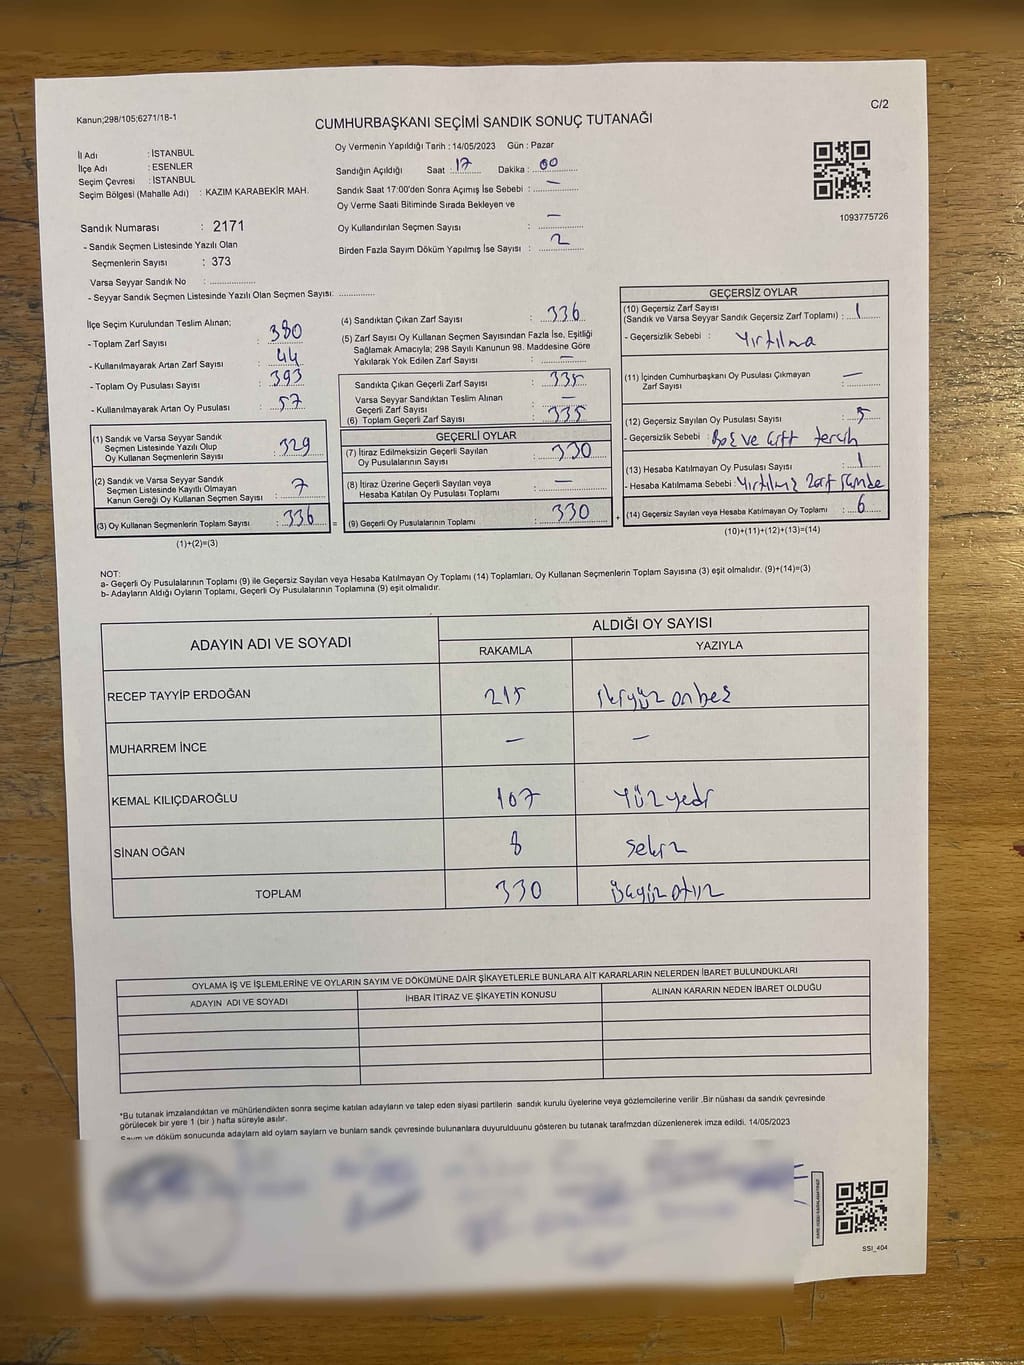 C/2
Kanun;298/105;6271/18-1
CUMHURBAŞKANI SEÇİMİ SANDIK SONUÇ TUTANAĞI
İl Adı : İSTANBUL
İlçe Adı : ESENLER
Seçim Çevresi : İSTANBUL
Seçim Bölgesi (Mahalle Adı) : KAZIM KARABEKİR MAH.
Oy Vermenin Yapıldığı Tarih : 14/05/2023 Gün : Pazar
Sandığın Açıldığı Saat : 17 Dakika : 00
Sandık Saat 17:00'den Sonra Açımış İse Sebebi : —
Oy Verme Saati Bitiminde Sırada Bekleyen ve
Oy Kullandırılan Seçmen Sayısı : —
Birden Fazla Sayım Döküm Yapılmış İse Sayısı : 2
1093775726
Sandık Numarası : 2171
- Sandık Seçmen Listesinde Yazılı Olan
Seçmenlerin Sayısı : 373
Varsa Seyyar Sandık No : ................
- Seyyar Sandık Seçmen Listesinde Yazılı Olan Seçmen Sayısı: .............
İlçe Seçim Kurulundan Teslim Alınan;
- Toplam Zarf Sayısı : 380
- Kullanılmayarak Artan Zarf Sayısı : 44
- Toplam Oy Pusulası Sayısı : 393
- Kullanılmayarak Artan Oy Pusulası : 57
(1) Sandık ve Varsa Seyyar Sandık
Seçmen Listesinde Yazılı Olup
Oy Kullanan Seçmenlerin Sayısı : 329
(2) Sandık ve Varsa Seyyar Sandık
Seçmen Listesinde Kayıtlı Olmayan
Kanun Gereği Oy Kullanan Seçmen Sayısı : 7
(3) Oy Kullanan Seçmenlerin Toplam Sayısı : 336 =
(1)+(2)=(3)
(4) Sandıktan Çıkan Zarf Sayısı : 336
(5) Zarf Sayısı Oy Kullanan Seçmen Sayısından Fazla İse, Eşitliği
Sağlamak Amacıyla; 298 Sayılı Kanunun 98. Maddesine Göre
Yakılarak Yok Edilen Zarf Sayısı : —
Sandıkta Çıkan Geçerli Zarf Sayısı : 335
Varsa Seyyar Sandıktan Teslim Alınan
Geçerli Zarf Sayısı : —
(6) Toplam Geçerli Zarf Sayısı : 335
GEÇERLİ OYLAR
(7) İtiraz Edilmeksizin Geçerli Sayılan
Oy Pusulalarının Sayısı : 330
(8) İtiraz Üzerine Geçerli Sayılan veya
Hesaba Katılan Oy Pusulası Toplamı : —
(9) Geçerli Oy Pusulalarının Toplamı : 330 +
GEÇERSİZ OYLAR
(10) Geçersiz Zarf Sayısı
(Sandık ve Varsa Seyyar Sandık Geçersiz Zarf Toplamı) : 1
- Geçersizlik Sebebi : Yırtılma
(11) İçinden Cumhurbaşkanı Oy Pusulası Çıkmayan
Zarf Sayısı : —
(12) Geçersiz Sayılan Oy Pusulası Sayısı : 5
- Geçersizlik Sebebi : Boş ve çift tercih
(13) Hesaba Katılmayan Oy Pusulası Sayısı : 1
- Hesaba Katılmama Sebebi : Yırtılmış zarf içinde
(14) Geçersiz Sayılan veya Hesaba Katılmayan Oy Toplamı : 6
(10)+(11)+(12)+(13)=(14)
NOT:
a- Geçerli Oy Pusulalarının Toplamı (9) ile Geçersiz Sayılan veya Hesaba Katılmayan Oy Toplamı (14) Toplamları, Oy Kullanan Seçmenlerin Toplam Sayısına (3) eşit olmalıdır. (9)+(14)=(3)
b- Adayların Aldığı Oyların Toplamı, Geçerli Oy Pusulalarının Toplamına (9) eşit olmalıdır.
ADAYIN ADI VE SOYADI ALDIĞI OY SAYISI
RAKAMLA YAZIYLA
RECEP TAYYİP ERDOĞAN 215 ikiyüz onbeş
MUHARREM İNCE — —
KEMAL KILIÇDAROĞLU 107 Yüzyedi
SİNAN OĞAN 8 Sekiz
TOPLAM 330 Üçyüz otuz
OYLAMA İŞ VE İŞLEMLERİNE VE OYLARIN SAYIM VE DÖKÜMÜNE DAİR ŞİKAYETLERLE BUNLARA AİT KARARLARIN NELERDEN İBARET BULUNDUKLARI
ADAYIN ADI VE SOYADI İHBAR İTİRAZ VE ŞİKAYETİN KONUSU ALINAN KARARIN NEDEN İBARET OLDUĞU
*Bu tutanak imzalandıktan ve mühürlendikten sonra seçime katılan adayların ve talep eden siyasi partilerin sandık kurulu üyelerine veya gözlemcilerine verilir .Bir nüshası da sandık çevresinde
görülecek bir yere 1 (bir ) hafta süreyle asılır.
Sayım ve döküm sonucunda adayların ald oyların sayların ve bunların sandk çevresinde bulunanlara duyurulduunu gösteren bu tutanak tarafmzdan düzenlenerek imza edildi. 14/05/2023
SSI_404